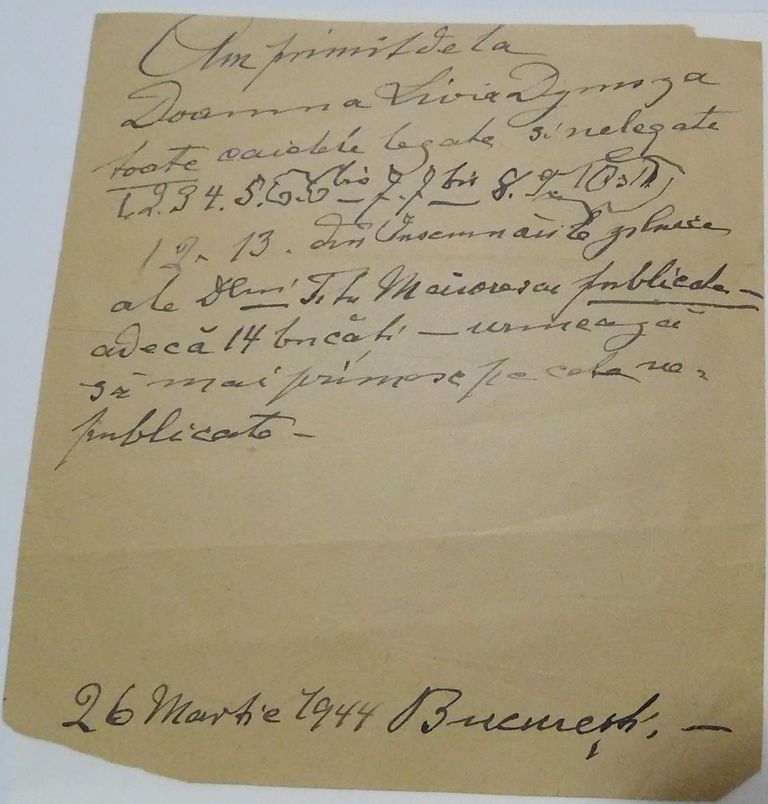 Am primit de la
Doamna Livia Dymsza
toate caietele legate si nelegate
1.2.3 4. 5. 6.6 bis 7. 7 bis 8. 9. 10 si 11
12. 13. din Însemnările zilnice
ale Dlui Titu Maiorescu publicate –
adecă 14 bucăti – urmează
să mai primesc pe cele ne-
publicate –
26 Martie 1944 București. –